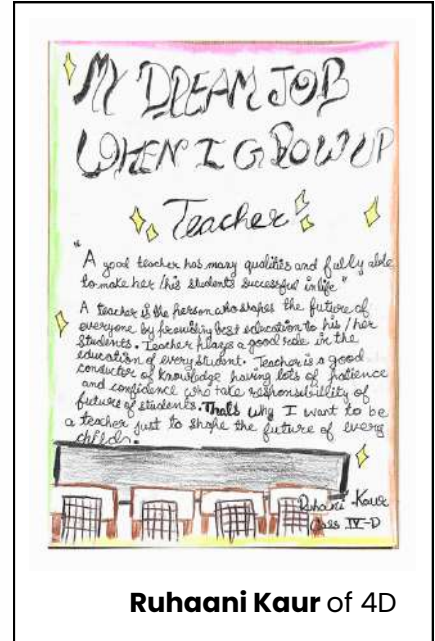 MY DREAM JOB
WHEN I GROW UP
Teacher
"A good teacher has many qualities and fully able
to make her/his students successful in life"
A teacher is the person who shapes the future of
everyone by providing best education to his/her
students. Teacher plays a good role in the
education of every student. Teacher is a good
conductor of knowledge having lots of patience
and confidence who take responsibility of
future of students. Thats why I want to be
a teacher just to shape the future of every
child.
Ruhaani Kaur
Class IV-D
Ruhaani Kaur of 4D